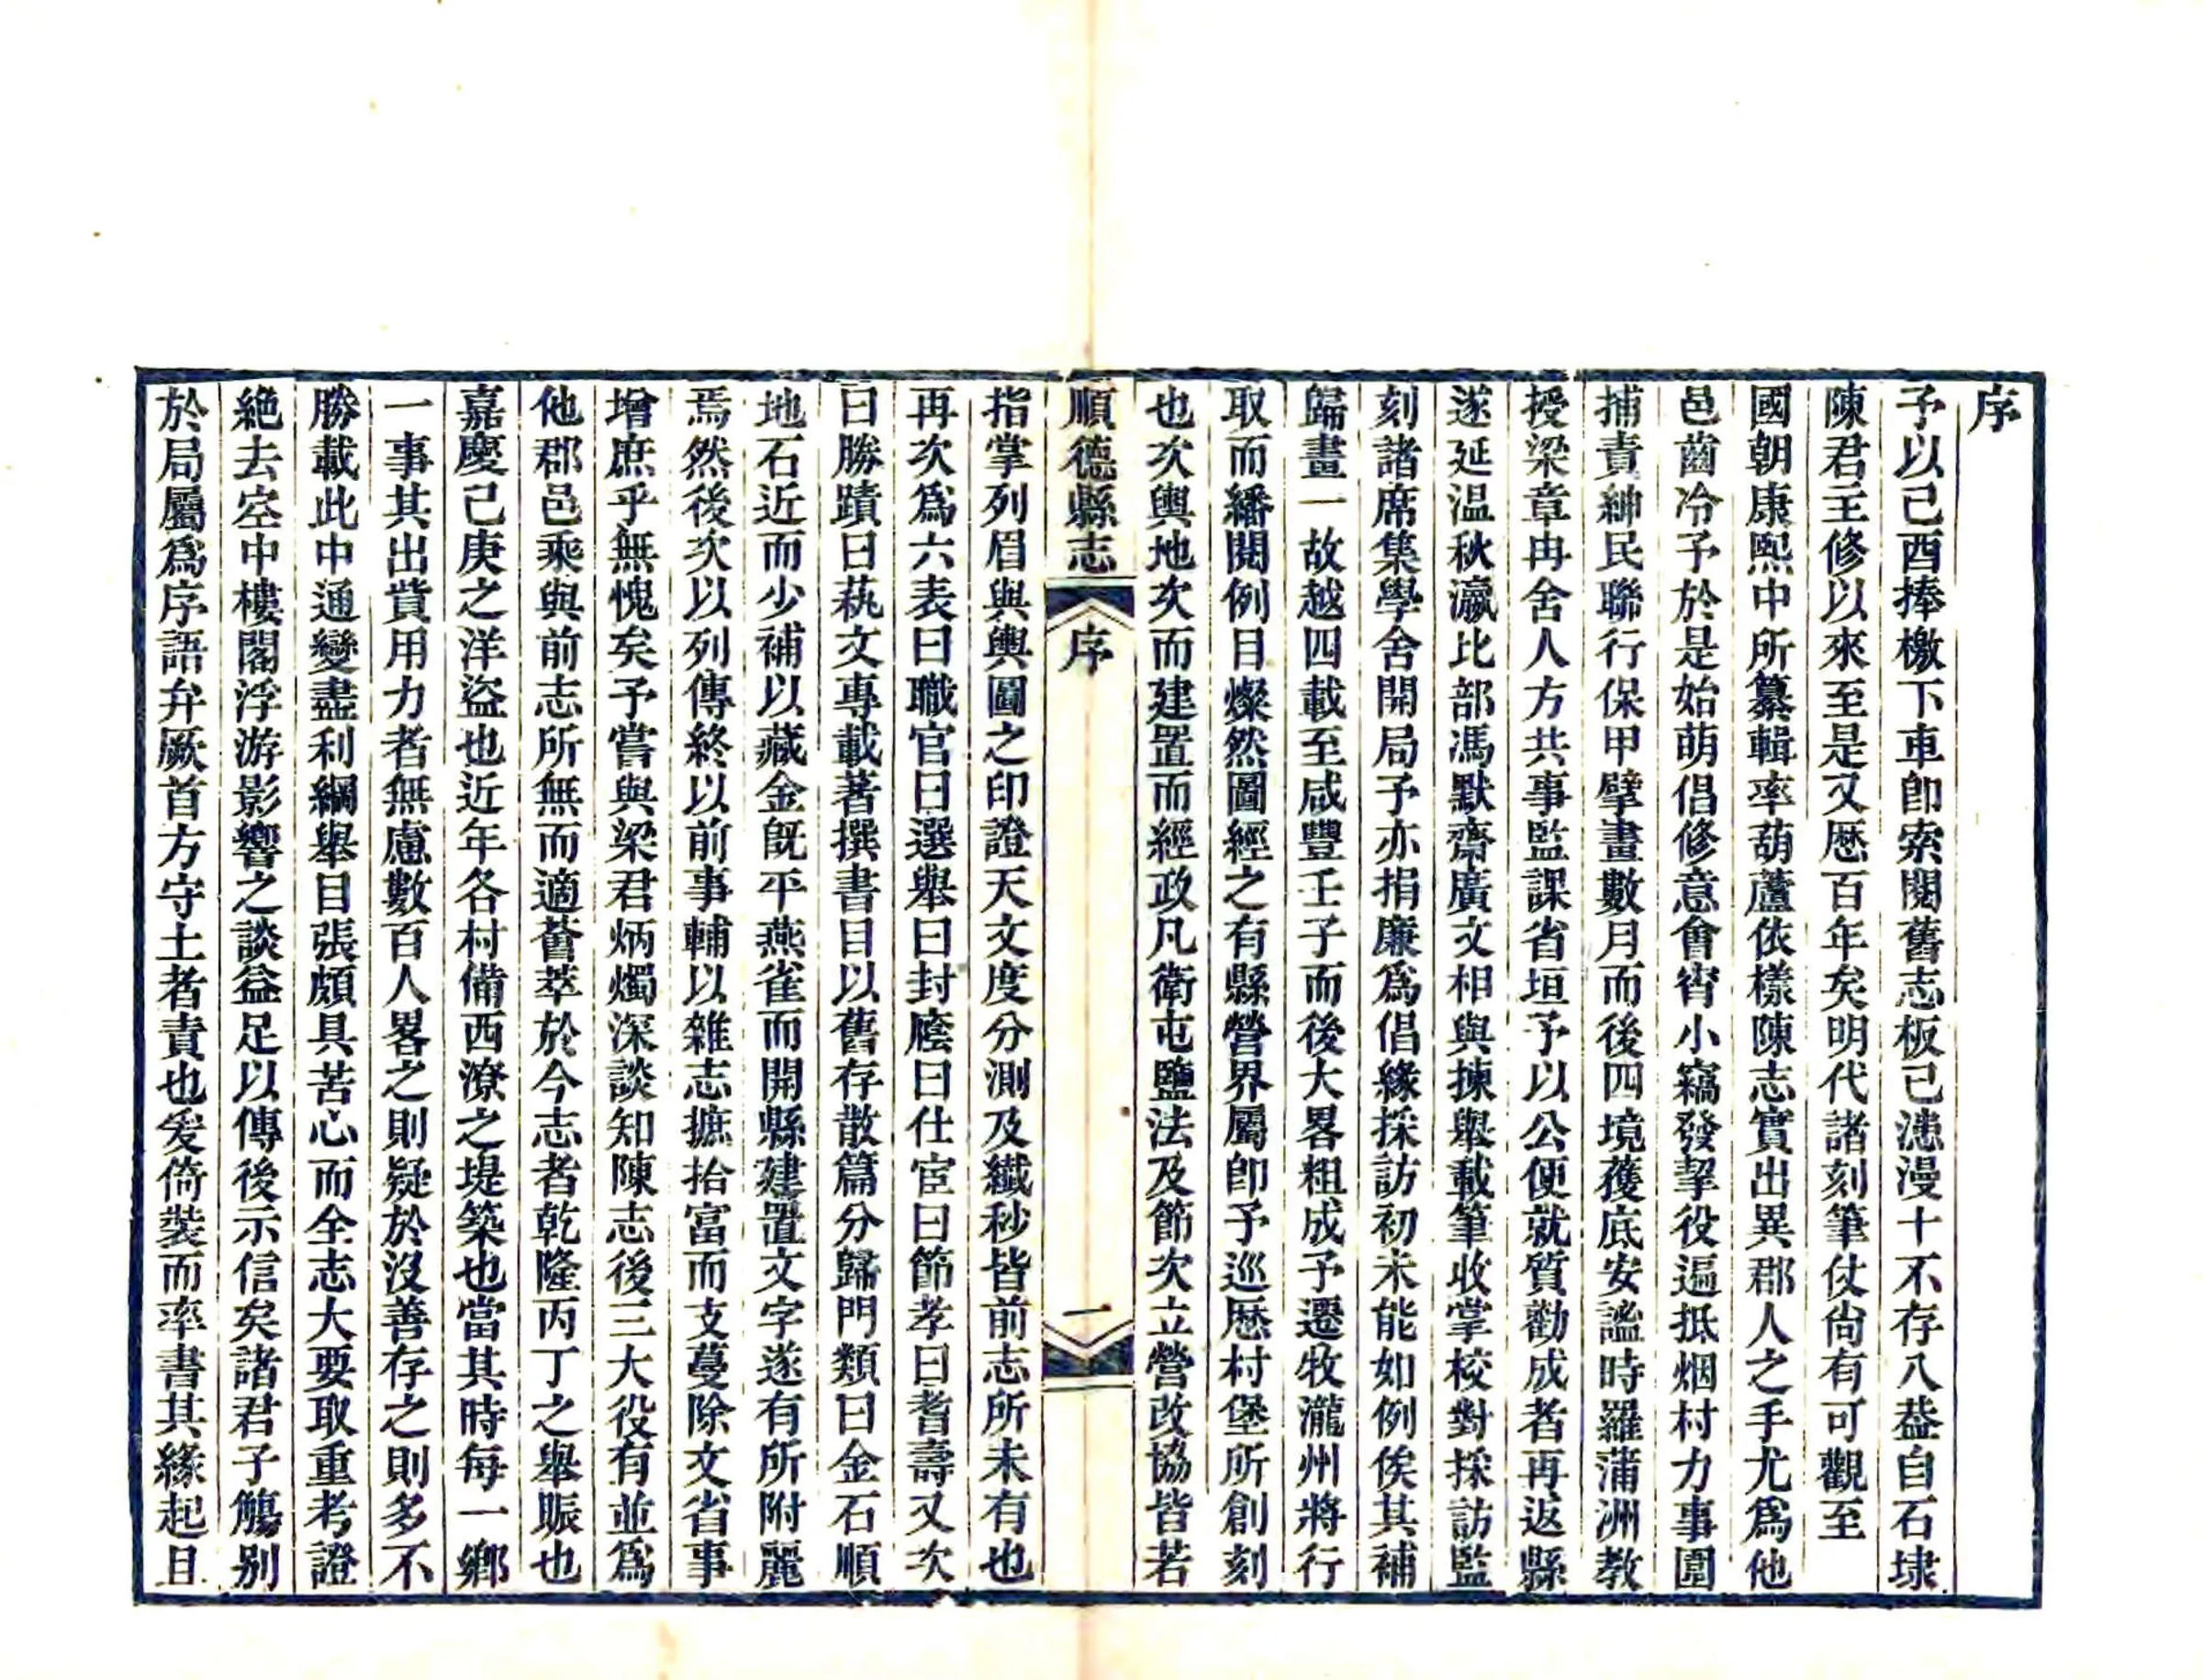 序
予以己酉捧檄下車卽索閱舊志板已漶漫十不存八葢自石埭
陳君主修以來至是又歷百年矣明代諸刻筆仗尙有可觀至
國朝康熙中所纂輯率葫蘆依樣陳志實出異郡人之手尤爲他
邑齒冷予於是始萌倡修意會宵小竊發挐役逼抵烟村力事圍
捕責紳民聯行保甲擘畫數月而後四境獲底安謐時羅蒲洲教
授梁章冉舍人方共事監課省垣予以公便就質勸成者再返縣
遂延温秋瀛比部馮默齋廣文相與揀舉載筆收掌校對採訪監
刻諸席集學舍開局予亦捐廉爲倡緣採訪初未能如例俟其補
歸畫一故越四載至咸豐壬子而後大畧粗成予遷牧瀧州將行
取而繙閱例目燦然圖經之有縣營界屬卽予巡歷村堡所創刻
也次輿地次而建置而經政凡衛屯鹽法及節次立營改協皆若
順德縣志
序
一
指掌列眉與輿圖之印證天文度分測及纖秒皆前志所未有也
再次爲六表曰職官曰選舉曰封廕曰仕宦曰節孝曰耆壽又次
曰勝蹟曰蓺文專載著撰書目以舊存散篇分歸門類曰金石順
地石近而少補以藏金旣平燕雀而開縣建置文字遂有所附麗
焉然後次以列傳終以前事輔以雜志摭拾富而支蔓除文省事
增庶乎無愧矣予嘗與梁君炳燭深談知陳志後三大役有並爲
他郡邑乘與前志所無而適薈萃於今志者乾隆丙丁之舉賑也
嘉慶己庚之洋盜也近年各村備西潦之堤築也當其時每一鄉
一事其出貲用力者無慮數百人畧之則疑於沒善存之則多不
勝載此中通變盡利綱舉目張頗具苦心而全志大要取重考證
絶去空中樓閣浮游影響之談益足以傳後示信矣諸君子觴别
於局屬爲序語弁厥首方守土者責也爰倚裝而率書其緣起且